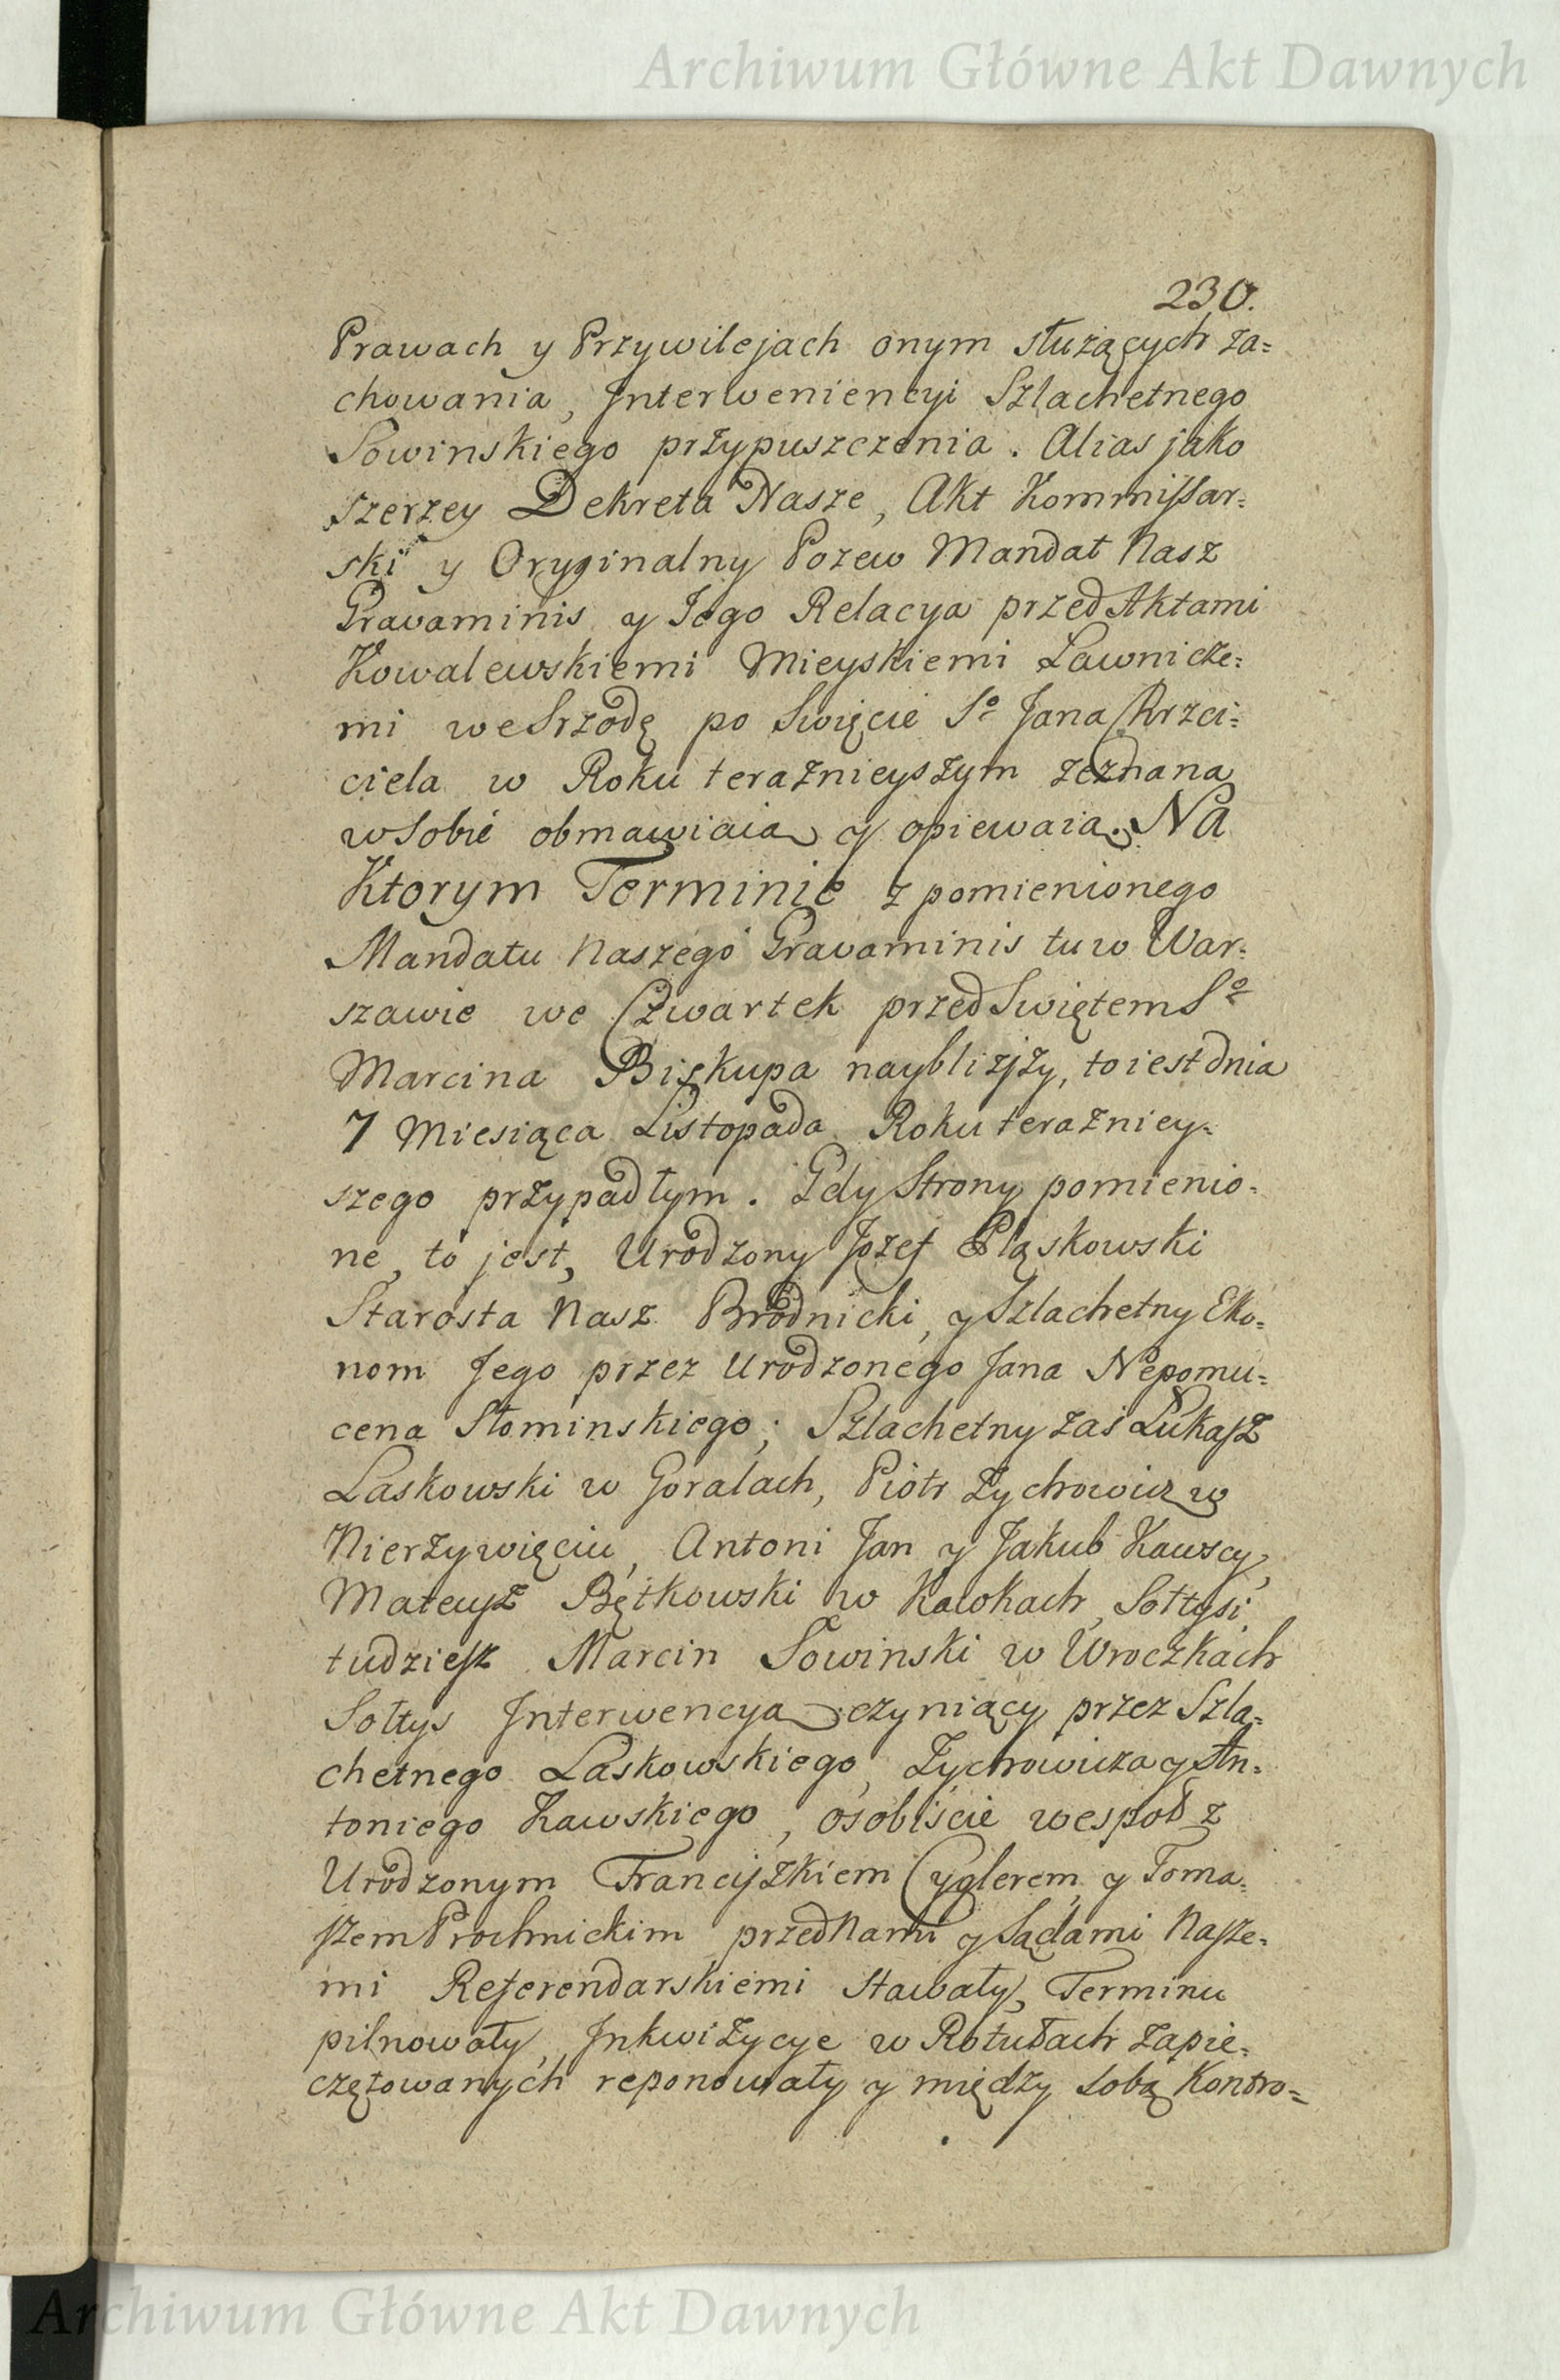 Archiwum Główne Akt Dawnych
230.
Prawach y Przywilejach onym służących za=
chowania, Jnterweniencyi Szlachetnego
Sowinskiego przypuszczenia. Alias jako
szerzey Dekreta Nasze, Akt Kommissar=
ski y Oryginalny Pozew Mandat Nasz
Gravaminis y Jego Relacya przed Aktami
Kowalewskiemi Mieyskiemi Ławnicze=
mi we Srzodę po Swięcie So Jana Krzci=
ciela w Roku teraznieyszym zeznana
w Sobie obmawiaią y opiewaią. Na
Ktorym Terminie z pomienionego
Mandatu Naszego Gravaminis tu w War=
szawie we Czwartek przed Swiętem So
Marcina Biskupa nayblizszy, to iest dnia
7 Miesiąca Listopada Roku terazniey=
szego przypadłym. Gdy Strony pomienio=
ne, to jest, Urodzony Jozef Pląskowski
Starosta Nasz Brodnicki, y Szlachetny Eko=
nom Jego przez Urodzonego Jana Nepomu=
cena Słominskiego; Szlachetny zaś Łukasz
Laskowski w Goralach, Piotr Zychowicz w
Nierzywięciu, Antoni Jan y Jakub Kawscy,
Mateusz Bętkowski w Kawkach, Sołtysi
tudziesz Marcin Sowinski w Wroczkach
Sołtys Jnterwencyą czyniący przez Szla=
chetnego Laskowskiego, Zychowicza y An=
toniego Kawskiego, osobiście wespoł z
Urodzonym Franciszkiem Cyglerem y Toma=
szem Prochnickim przed Nami y Sądami Nasze=
mi Referendarskiemi stawały, Terminu
pilnowały, Jnkwizycye w Rotułach zapie=
czętowanych reponowały y między sobą Kontro=
Archiwum Główne Akt Dawnych